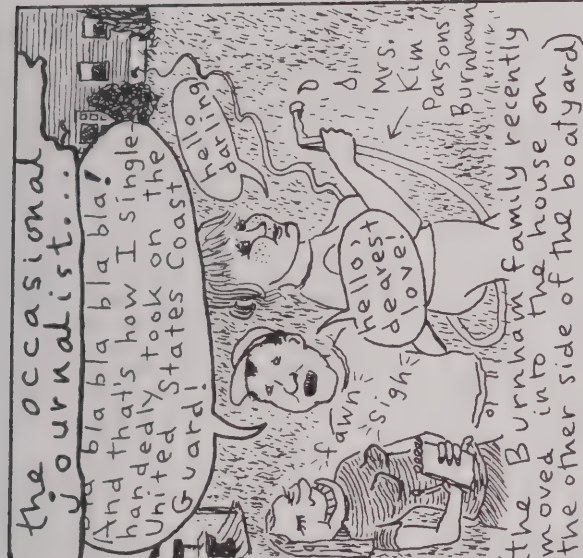 the occasional
journalist...
bla bla bla bla bla!
And that's how I single-
handedly took on the
United States Coast
Guard!
hello
darling
hello,
dearest
love!
Mrs.
Kim
Parsons
Burnham
fawn
sigh
the Burnham family recently
moved into the house on
the other side of the boatyard)